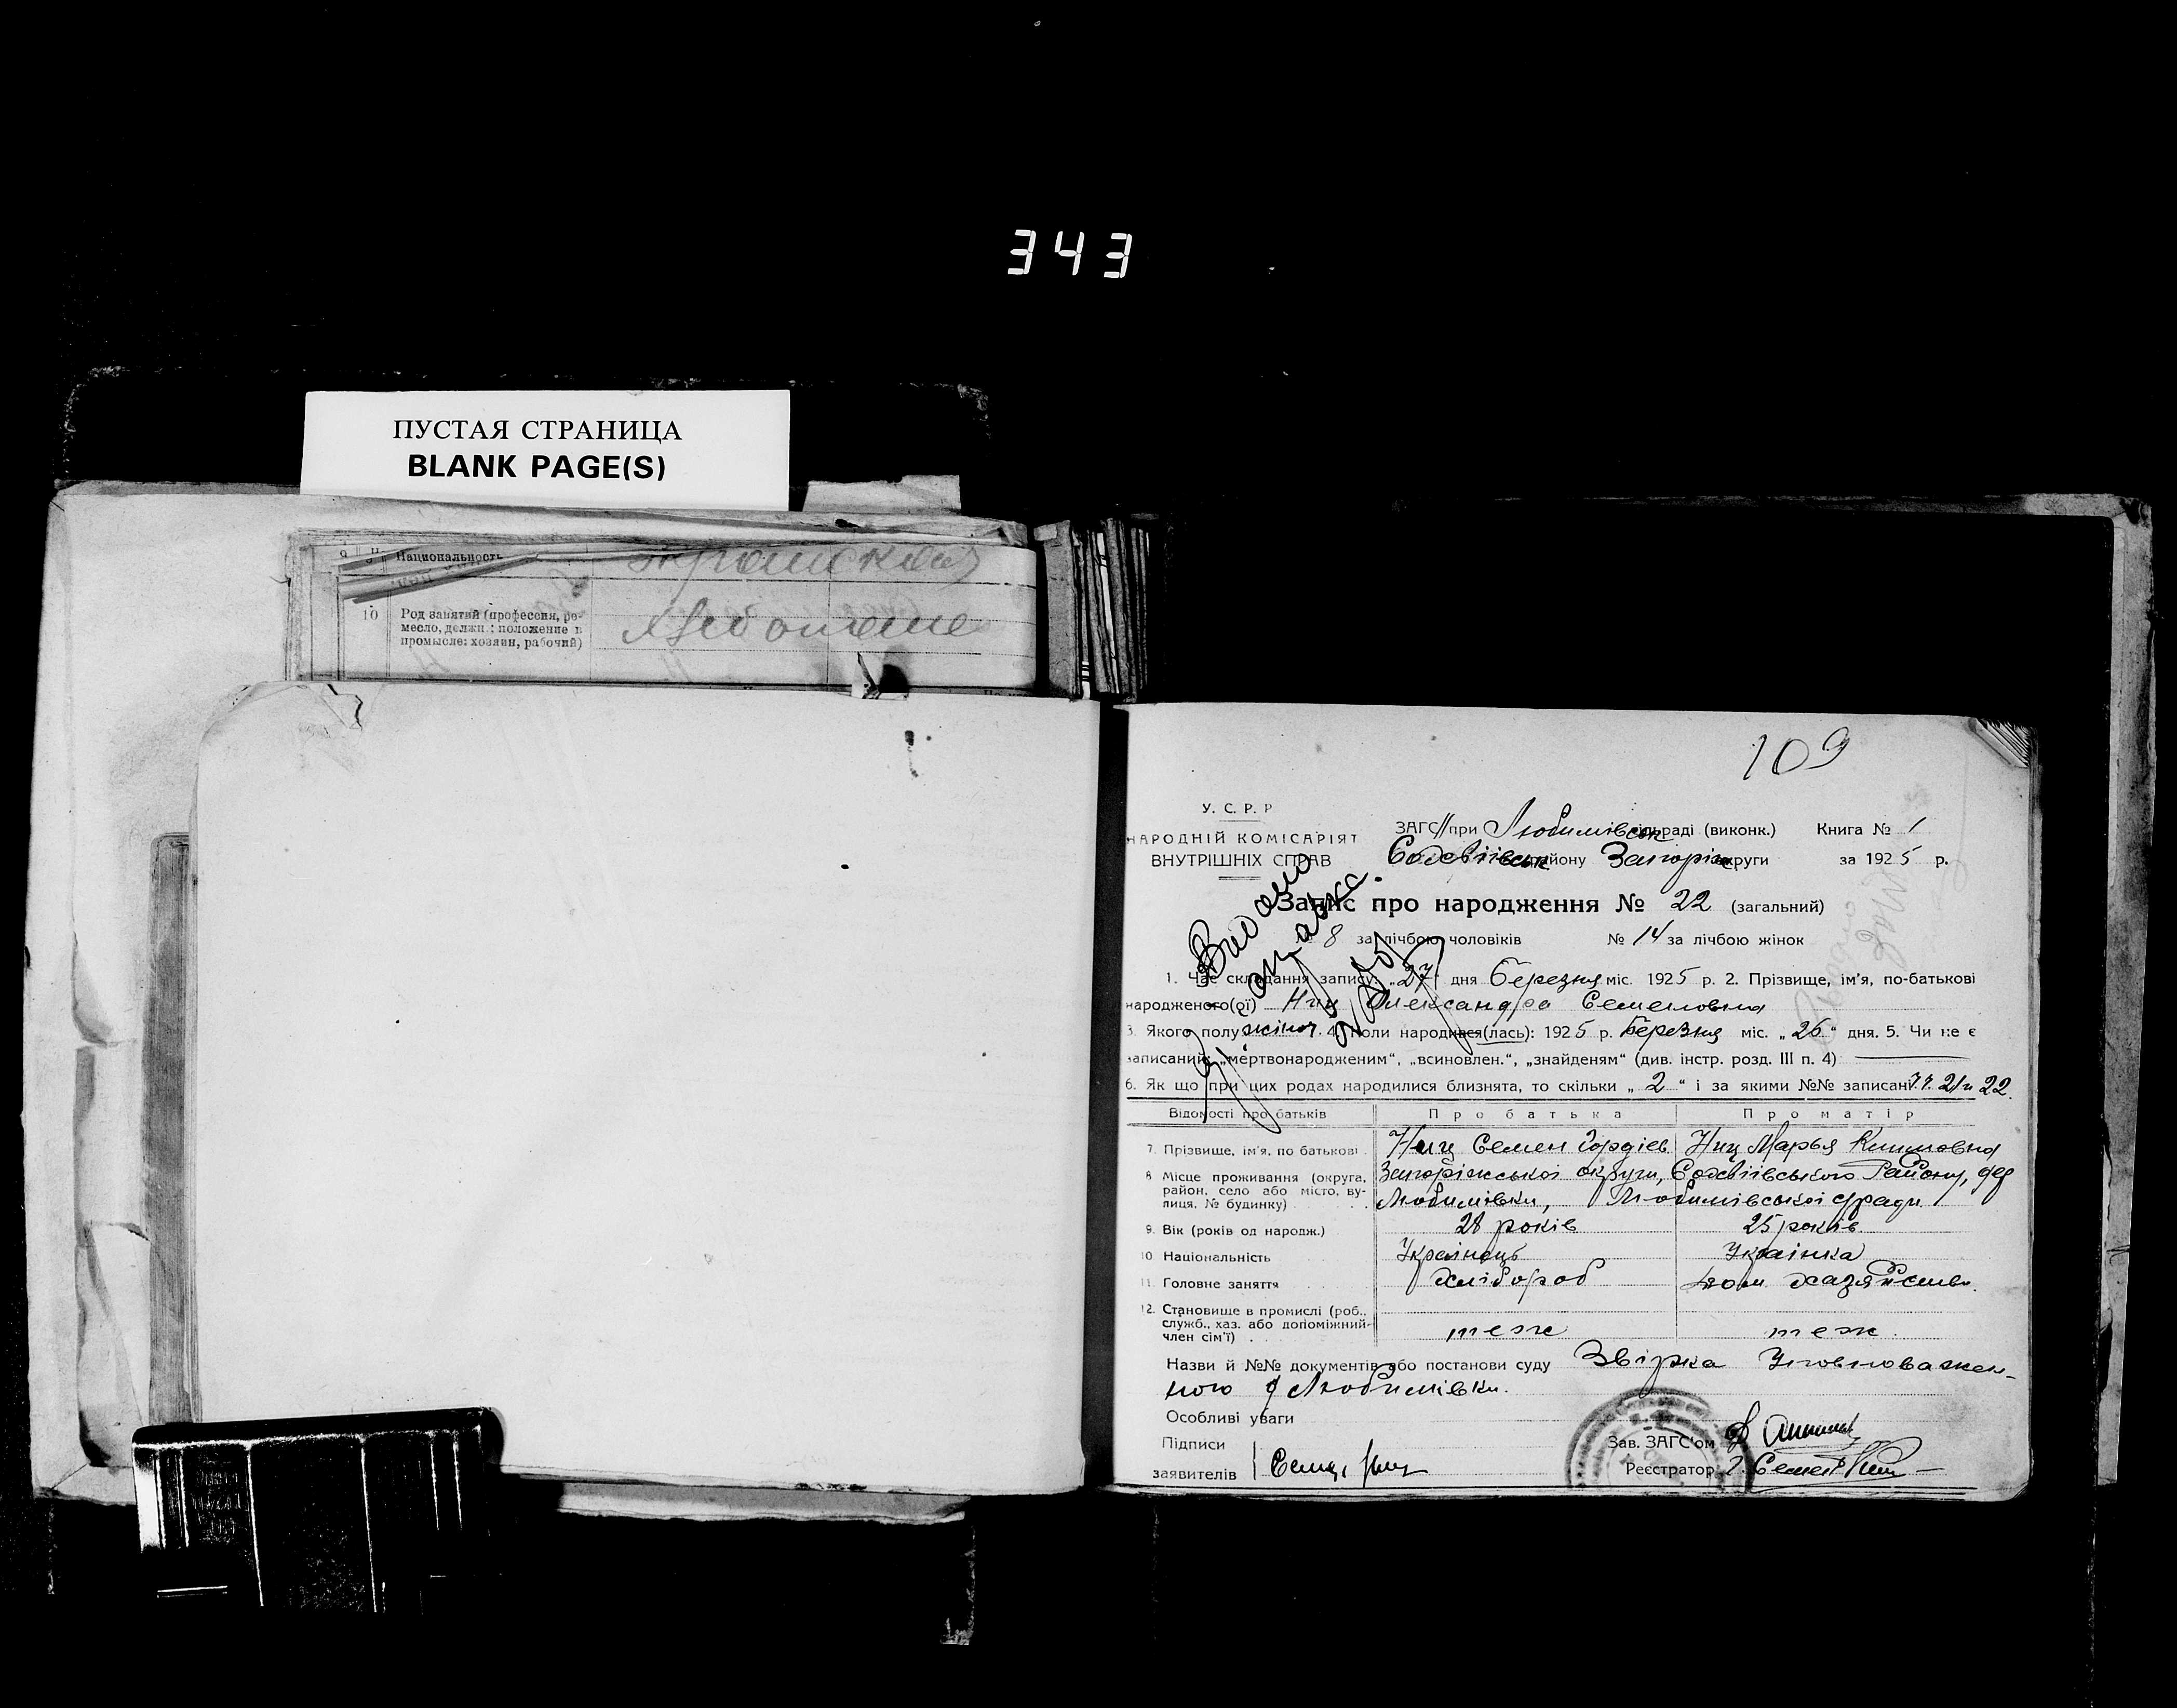 343
ПУСТАЯ СТРАНИЦА
BLANK PAGE(S)
9 Национальность
10 Род занятий (професеия, ре-
месло, должн.: положение в
промысле: хозяин, рабочий)
109
У. С. Р. Р
НАРОДНІЙ КОМІСАРІЯТ
ВНУТРІШНІХ СПРАВ
ЗАГС при Любимівськ сільраді (виконк.) Книга № 1
Софіївськ району Запоріж округи за 1925 р.
Запис про народження № 22 (загальний)
№ 8 за лічбою чоловіків № 14 за лічбою жінок
1. Час складання запису: „27" дня березня міс. 1925 р. 2. Прізвище, ім'я, по-батькові
народженого(ої) Нищ Олександра Семеновна
3. Якого полу жіноч. 4. Коли народився(лась): 1925 р. березня міс. „26" дня. 5. Чи не є
записаний: „мертвонародженим", „всиновлен.", „знайденям" (див. інстр. розд. III п. 4)
6. Як що при цих родах народилися близнята, то скільки „2" і за якими №№ записані 21 и 22.
Відомості про батьків Про батька Про матір
7. Прізвище, ім'я, по батькові Нищ Семен Гордіев Нищ Марья Климовна
8 Місце проживання (округа, район, село або місто, ву-
лиця, № будинку)
Запоріжської округи, Софіівського Району, дер
Любимівки, Любимівської с/ради
9. Вік (років од народж.) 28 років 25 років
10 Національність Українець Українка
11. Головне заняття хлібороб дом хазяйство.
12. Становище в промислі (роб.,
служб., хаз. або допоміжний
член сім'ї) теж теж.
Назви й №№ документів або постанови суду Звірка Уповноважен-
ного д Любимівки.
Особливі уваги
Підписи
заявителів Семен Нищ
Зав. ЗАГС'ом
Реєстратор Семен
Видано